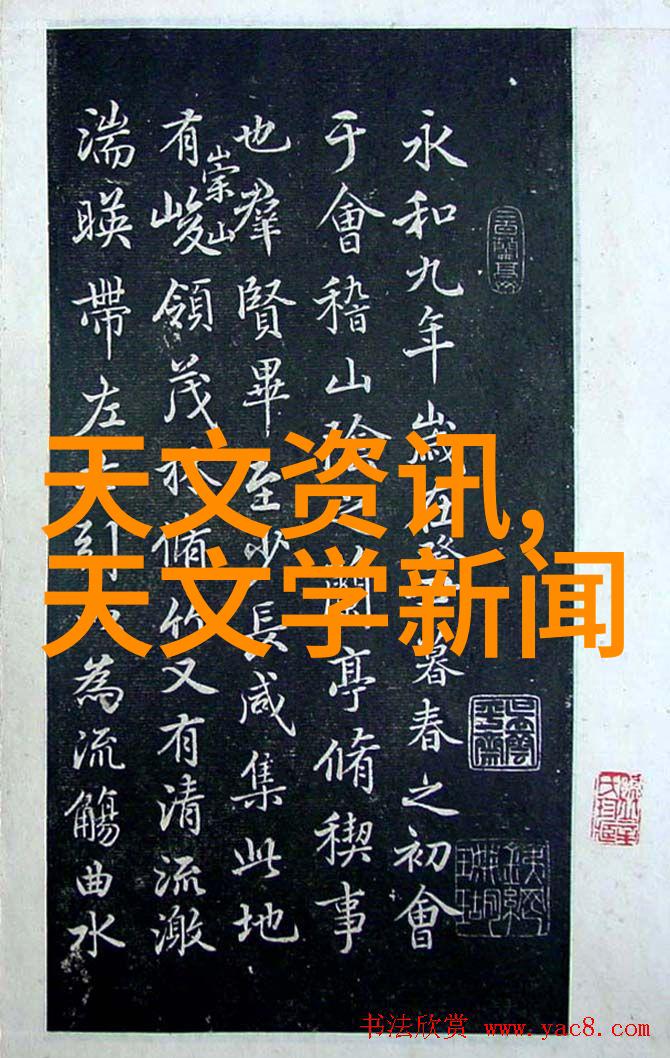 永和九年歲在癸暮春之初會
于會稽山陰之蘭亭脩稧事
也羣賢畢至少長咸集此地
有崇山峻領茂林脩竹又有清流激
湍暎帶左右引以為流觴曲水
天文资讯,
天文学新闻
书法欣赏 www.yac8.com